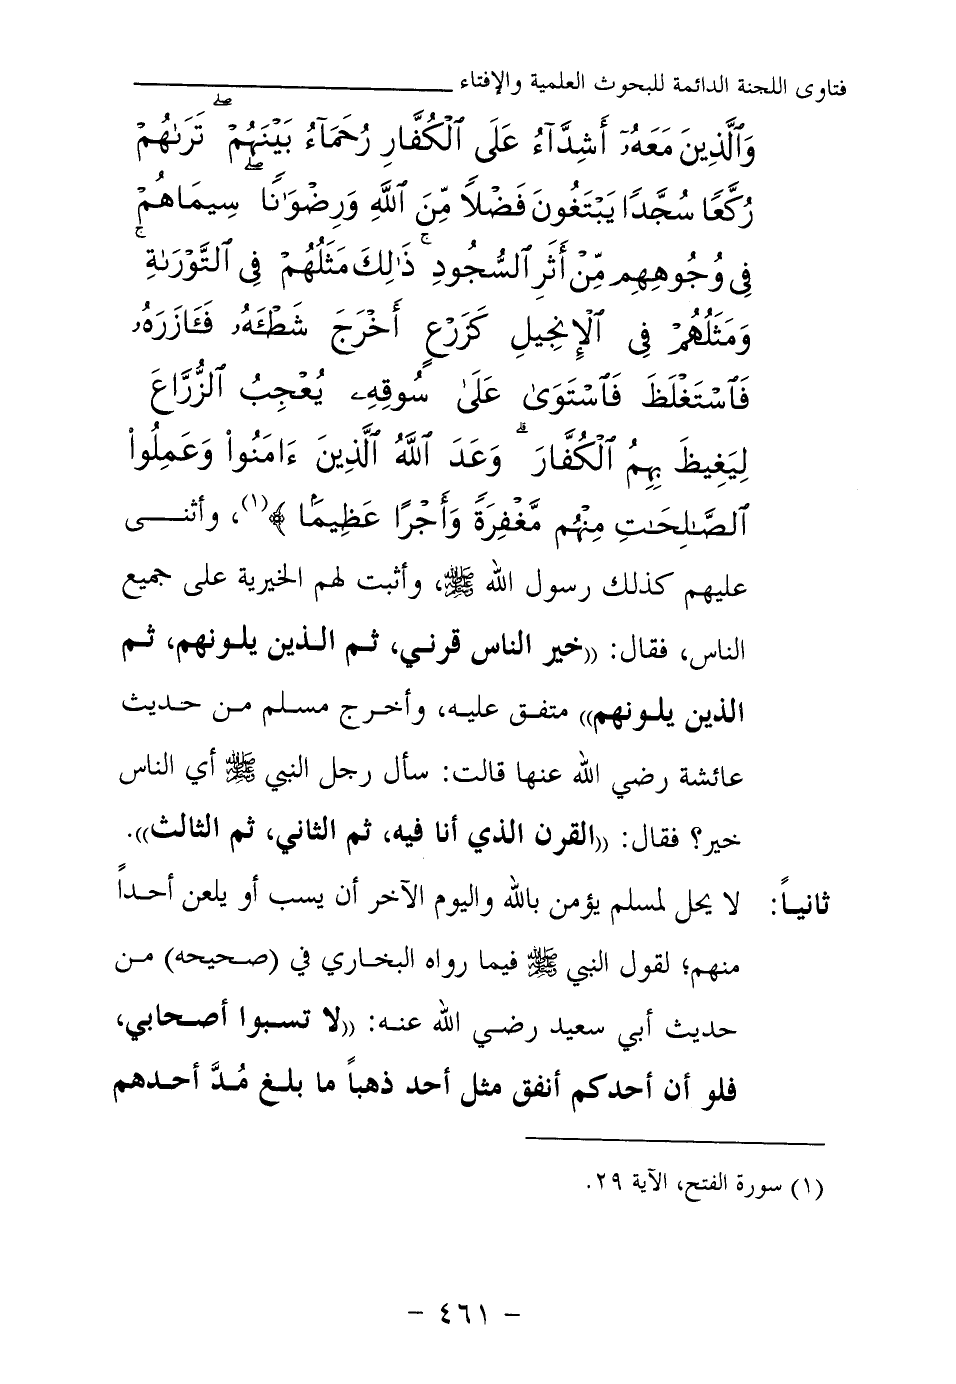 فتاوى اللجنة الدائمة للبحوث العلمية والإفتاء
وَٱلَّذِينَ مَعَهُۥٓ أَشِدَّآءُ عَلَى ٱلْكُفَّارِ رُحَمَآءُ بَيْنَهُمْ ۖ تَرَىٰهُمْ
رُكَّعًا سُجَّدًا يَبْتَغُونَ فَضْلًا مِّنَ ٱللَّهِ وَرِضْوَٰنًا ۖ سِيمَاهُمْ
فِى وُجُوهِهِم مِّنْ أَثَرِ ٱلسُّجُودِ ۚ ذَٰلِكَ مَثَلُهُمْ فِى ٱلتَّوْرَىٰةِ ۚ
وَمَثَلُهُمْ فِى ٱلْإِنجِيلِ كَزَرْعٍ أَخْرَجَ شَطْـَٔهُۥ فَـَٔازَرَهُۥ
فَٱسْتَغْلَظَ فَٱسْتَوَىٰ عَلَىٰ سُوقِهِۦ يُعْجِبُ ٱلزُّرَّاعَ
لِيَغِيظَ بِهِمُ ٱلْكُفَّارَ ۗ وَعَدَ ٱللَّهُ ٱلَّذِينَ ءَامَنُوا۟ وَعَمِلُوا۟
ٱلصَّـٰلِحَـٰتِ مِنْهُم مَّغْفِرَةً وَأَجْرًا عَظِيمًۢا ﴾(١)، وأثنـــى
عليهم كذلك رسول الله ﷺ، وأثبت لهم الخيرية على جميع
الناس، فقال: ((خير الناس قرني، ثم الذين يلونهم، ثم
الذين يلونهم)) متفق عليه، وأخرج مسلم من حديث
عائشة رضي الله عنها قالت: سأل رجل النبي ﷺ أي الناس
خير؟ فقال: ((القرن الذي أنا فيه، ثم الثاني، ثم الثالث)).
ثانياً: لا يحل لمسلم يؤمن بالله واليوم الآخر أن يسب أو يلعن أحداً
منهم؛ لقول النبي ﷺ فيما رواه البخاري في (صحيحه) من
حديث أبي سعيد رضي الله عنه: ((لا تسبوا أصحابي،
فلو أن أحدكم أنفق مثل أحد ذهباً ما بلغ مُدَّ أحدهم
(١) سورة الفتح، الآية ٢٩.
- ٤٦١ -